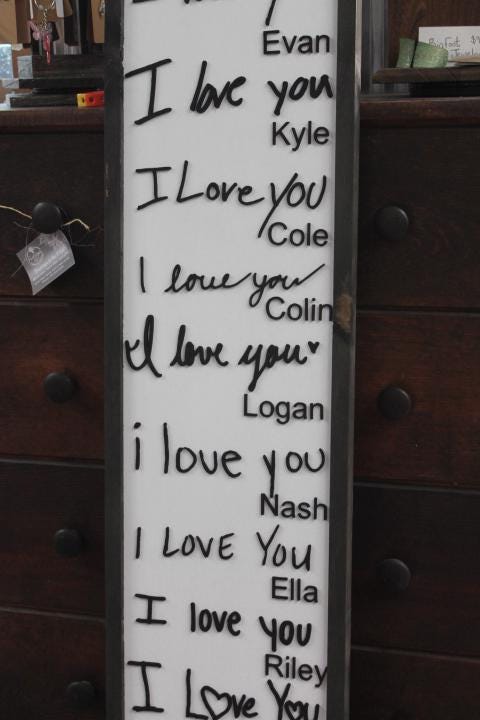 Evan
I love you
Kyle
I Love you
Cole
I love you
Colin
I love you
Logan
i love you
Nash
I LOVE You
Ella
I love you
Riley
I Love You